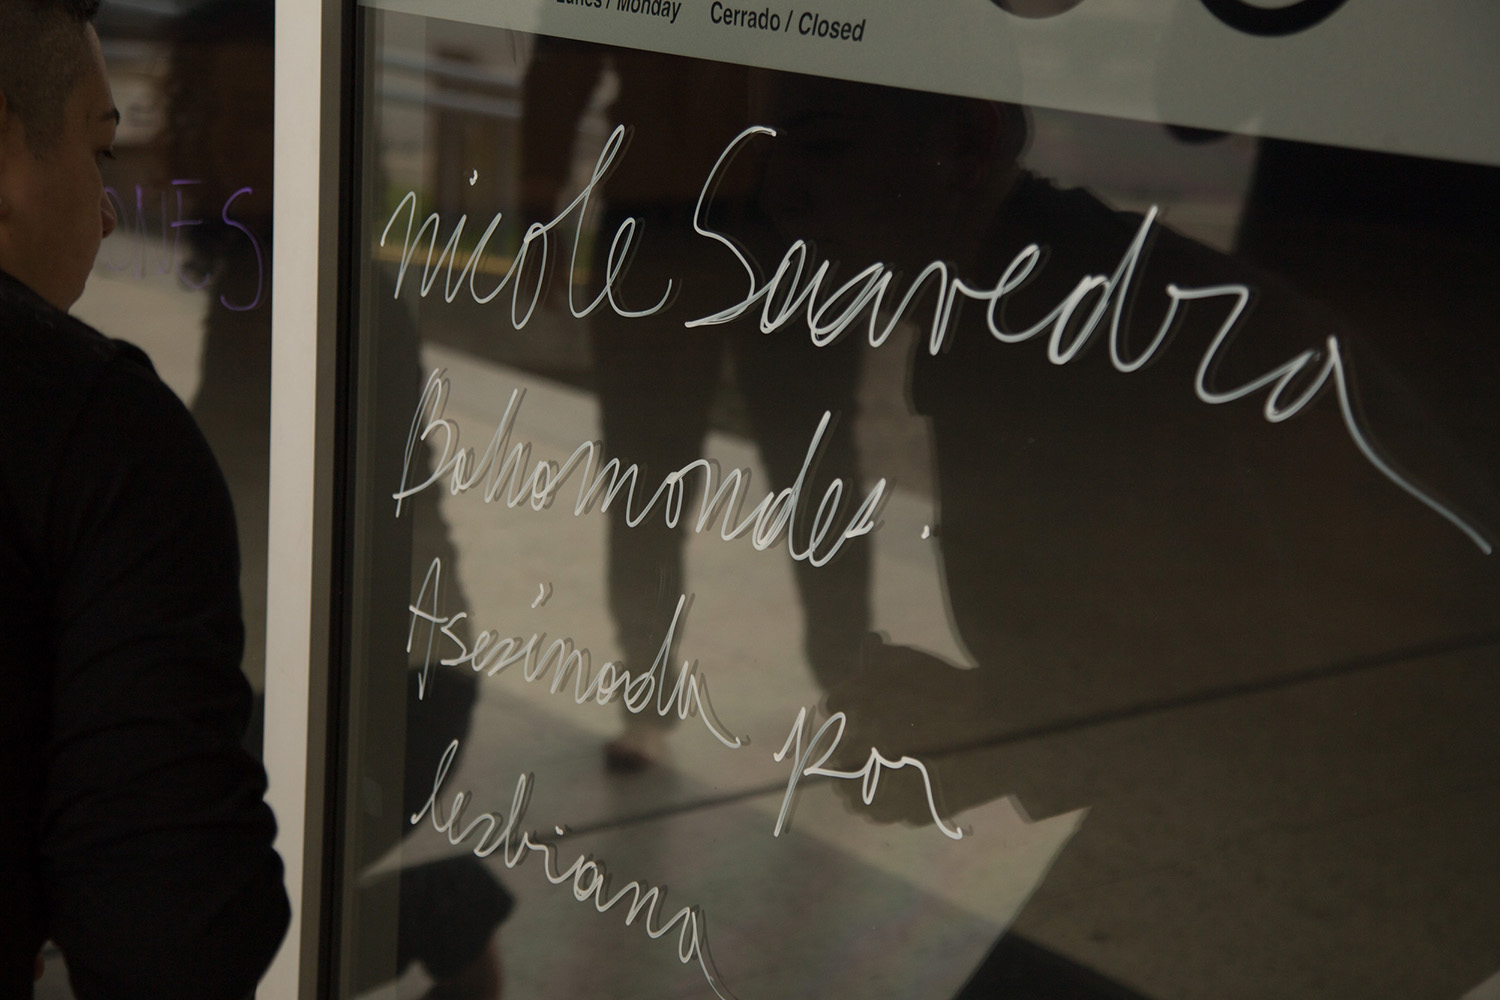 Lunes / Monday Cerrado / Closed
nicole Saavedra
Bahamondes.
Asesinada por
lesbiana
ONES